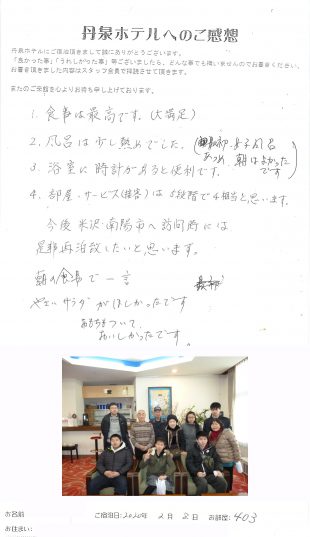 丹泉ホテルへのご感想
丹泉ホテルにご宿泊頂きまして誠にありがとうございます。
「良かった事」「うれしかった事」等ございましたら、どんな事でも構いませんのでお書きください。
お書き頂きました内容はスタッフ全員で拝読させて頂きます。
またのご来館を心よりお待ち申し上げております。
1. 食事は最高です。(大満足)
2. 風呂は少し熱めでした。
(最初 女子風呂
あつめ 朝はよかった
です)
3. 浴室に時計があると便利です。
4. 部屋、サービス(接客)は5段階で4相当と思います。
今後米沢・南陽市へ訪問時には
是非再泊致したいと思います。
朝の食場で一言
やさいサラダがほしかったです
おもちをついて、
おいしかったです
お名前
ご宿泊日: 2020年 2月 2日 お部屋: 403
お住まい: